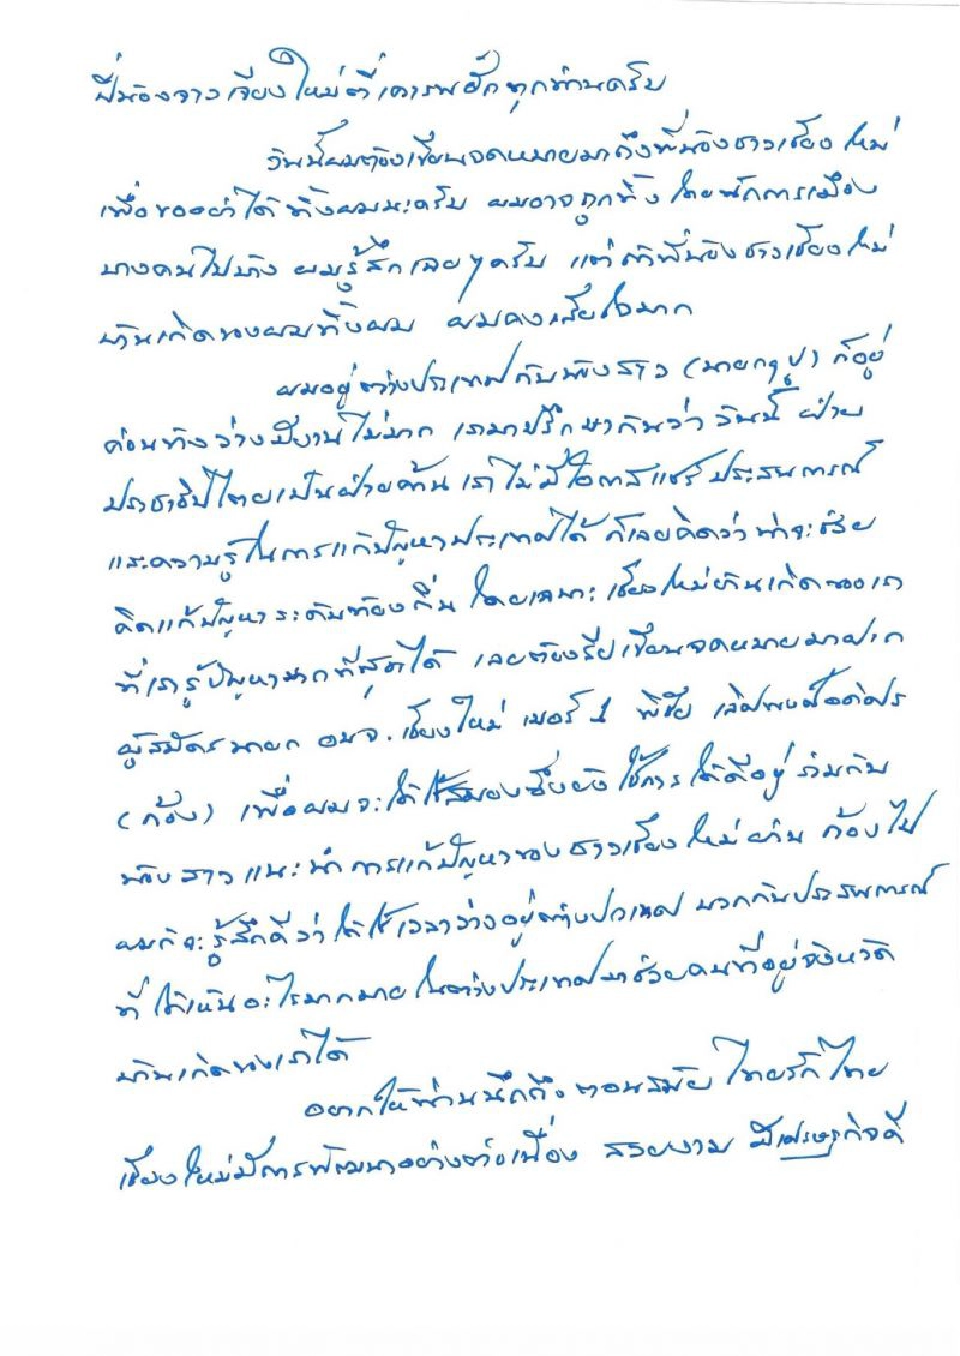 ปี้น้องจาวเจียงใหม่ตี้เคารพฮักทุกท่านครับ
วันนี้ผมต้องเขียนจดหมายมาถึงพี่น้องชาวเชียงใหม่
เพื่อขออย่าได้ทิ้งผมนะครับ ผมอาจถูกทิ้งโดยนักการเมือง
บางคนไปบ้าง ผมรู้สึกเฉยๆครับ แต่ถ้าพี่น้องชาวเชียงใหม่
บ้านเกิดของผมทิ้งผม ผมคงเสียใจมาก
ผมอยู่ต่างประเทศกับน้องสาว (นายกฯปู) ก็อยู่
ค่อนข้างว่างมีงานไม่มาก เรามาปรึกษากันว่า วันนี้ ฝ่าย
ประชาธิปไตยเป็นฝ่ายค้าน เราไม่มีโอกาสแชร์ประสบการณ์
และความรู้ในการแก้ปัญหาประเทศได้ ก็เลยคิดว่าน่าจะช่วย
คิดแก้ปัญหาระดับท้องถิ่น โดยเฉพาะเชียงใหม่บ้านเกิดของเรา
ที่เรารู้ปัญหามากที่สุดได้ เลยต้องรีบเขียนจดหมายมาฝาก
ผู้สมัครนายก อบจ.เชียงใหม่ เบอร์ 1 พิชัย เลิศพงศ์อดิศร
(ก๊อง) เพื่อผมจะได้ใช้สมองซึ่งยังใช้การได้ดีอยู่ ร่วมกับ
น้องสาวแนะนำการแก้ปัญหาของชาวเชียงใหม่ผ่าน ก๊องไป
ผมก็จะรู้สึกดีว่าได้ใช้เวลาว่างอยู่ต่างประเทศ บวกกับประสบการณ์
ที่ได้เห็นอะไรมากมายในต่างประเทศมาช่วยคนที่อยู่จังหวัด
บ้านเกิดของเราได้
อยากให้ท่านนึกถึงตอนสมัยไทยรักไทย
เชียงใหม่มีการพัฒนาอย่างต่อเนื่อง สวยงาม มีเศรษฐกิจดี